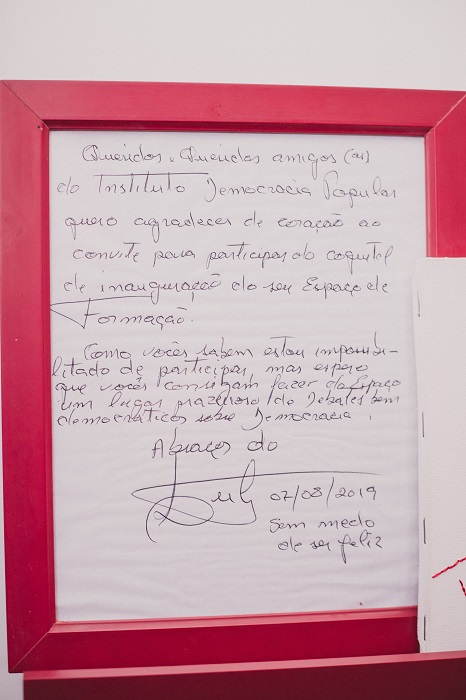 Queridos e Queridas amigos (as)
do Instituto Democracia Popular
quero agradecer de coração ao
convite para participar do coquitel
de inauguração do seu Espaço de
Formação.
Como vocês sabem estou impossibi-
litado de participar, mas espero
que vocês consigam fazer do Espaço
um lugar prazeiroso do Debates bem
democráticos sobre Democracia.
Abraços do
Lula 07/08/2019
Sem medo
de ser feliz